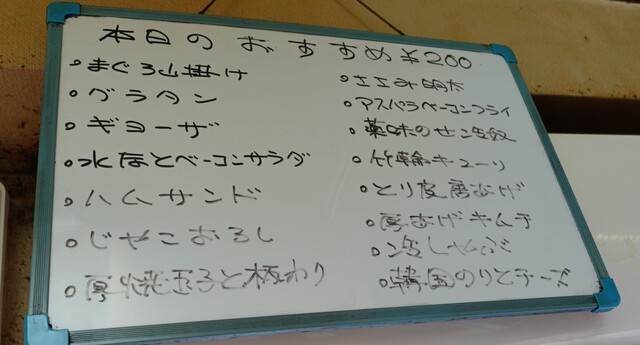 本日のおすすめ ¥200
・まぐろ山掛け
・グラタン
・ギョーザ
・水なとベーコンサラダ
・ハムサンド
・じゃこおろし
・厚焼玉子と板わり
・ささみ明太
・アスパラベーコンフライ
・薬味のせ冷奴
・竹輪キューリ
・とり皮唐あげ
・厚あげキムチ
・冷しゃぶ
・韓国のりとチーズ